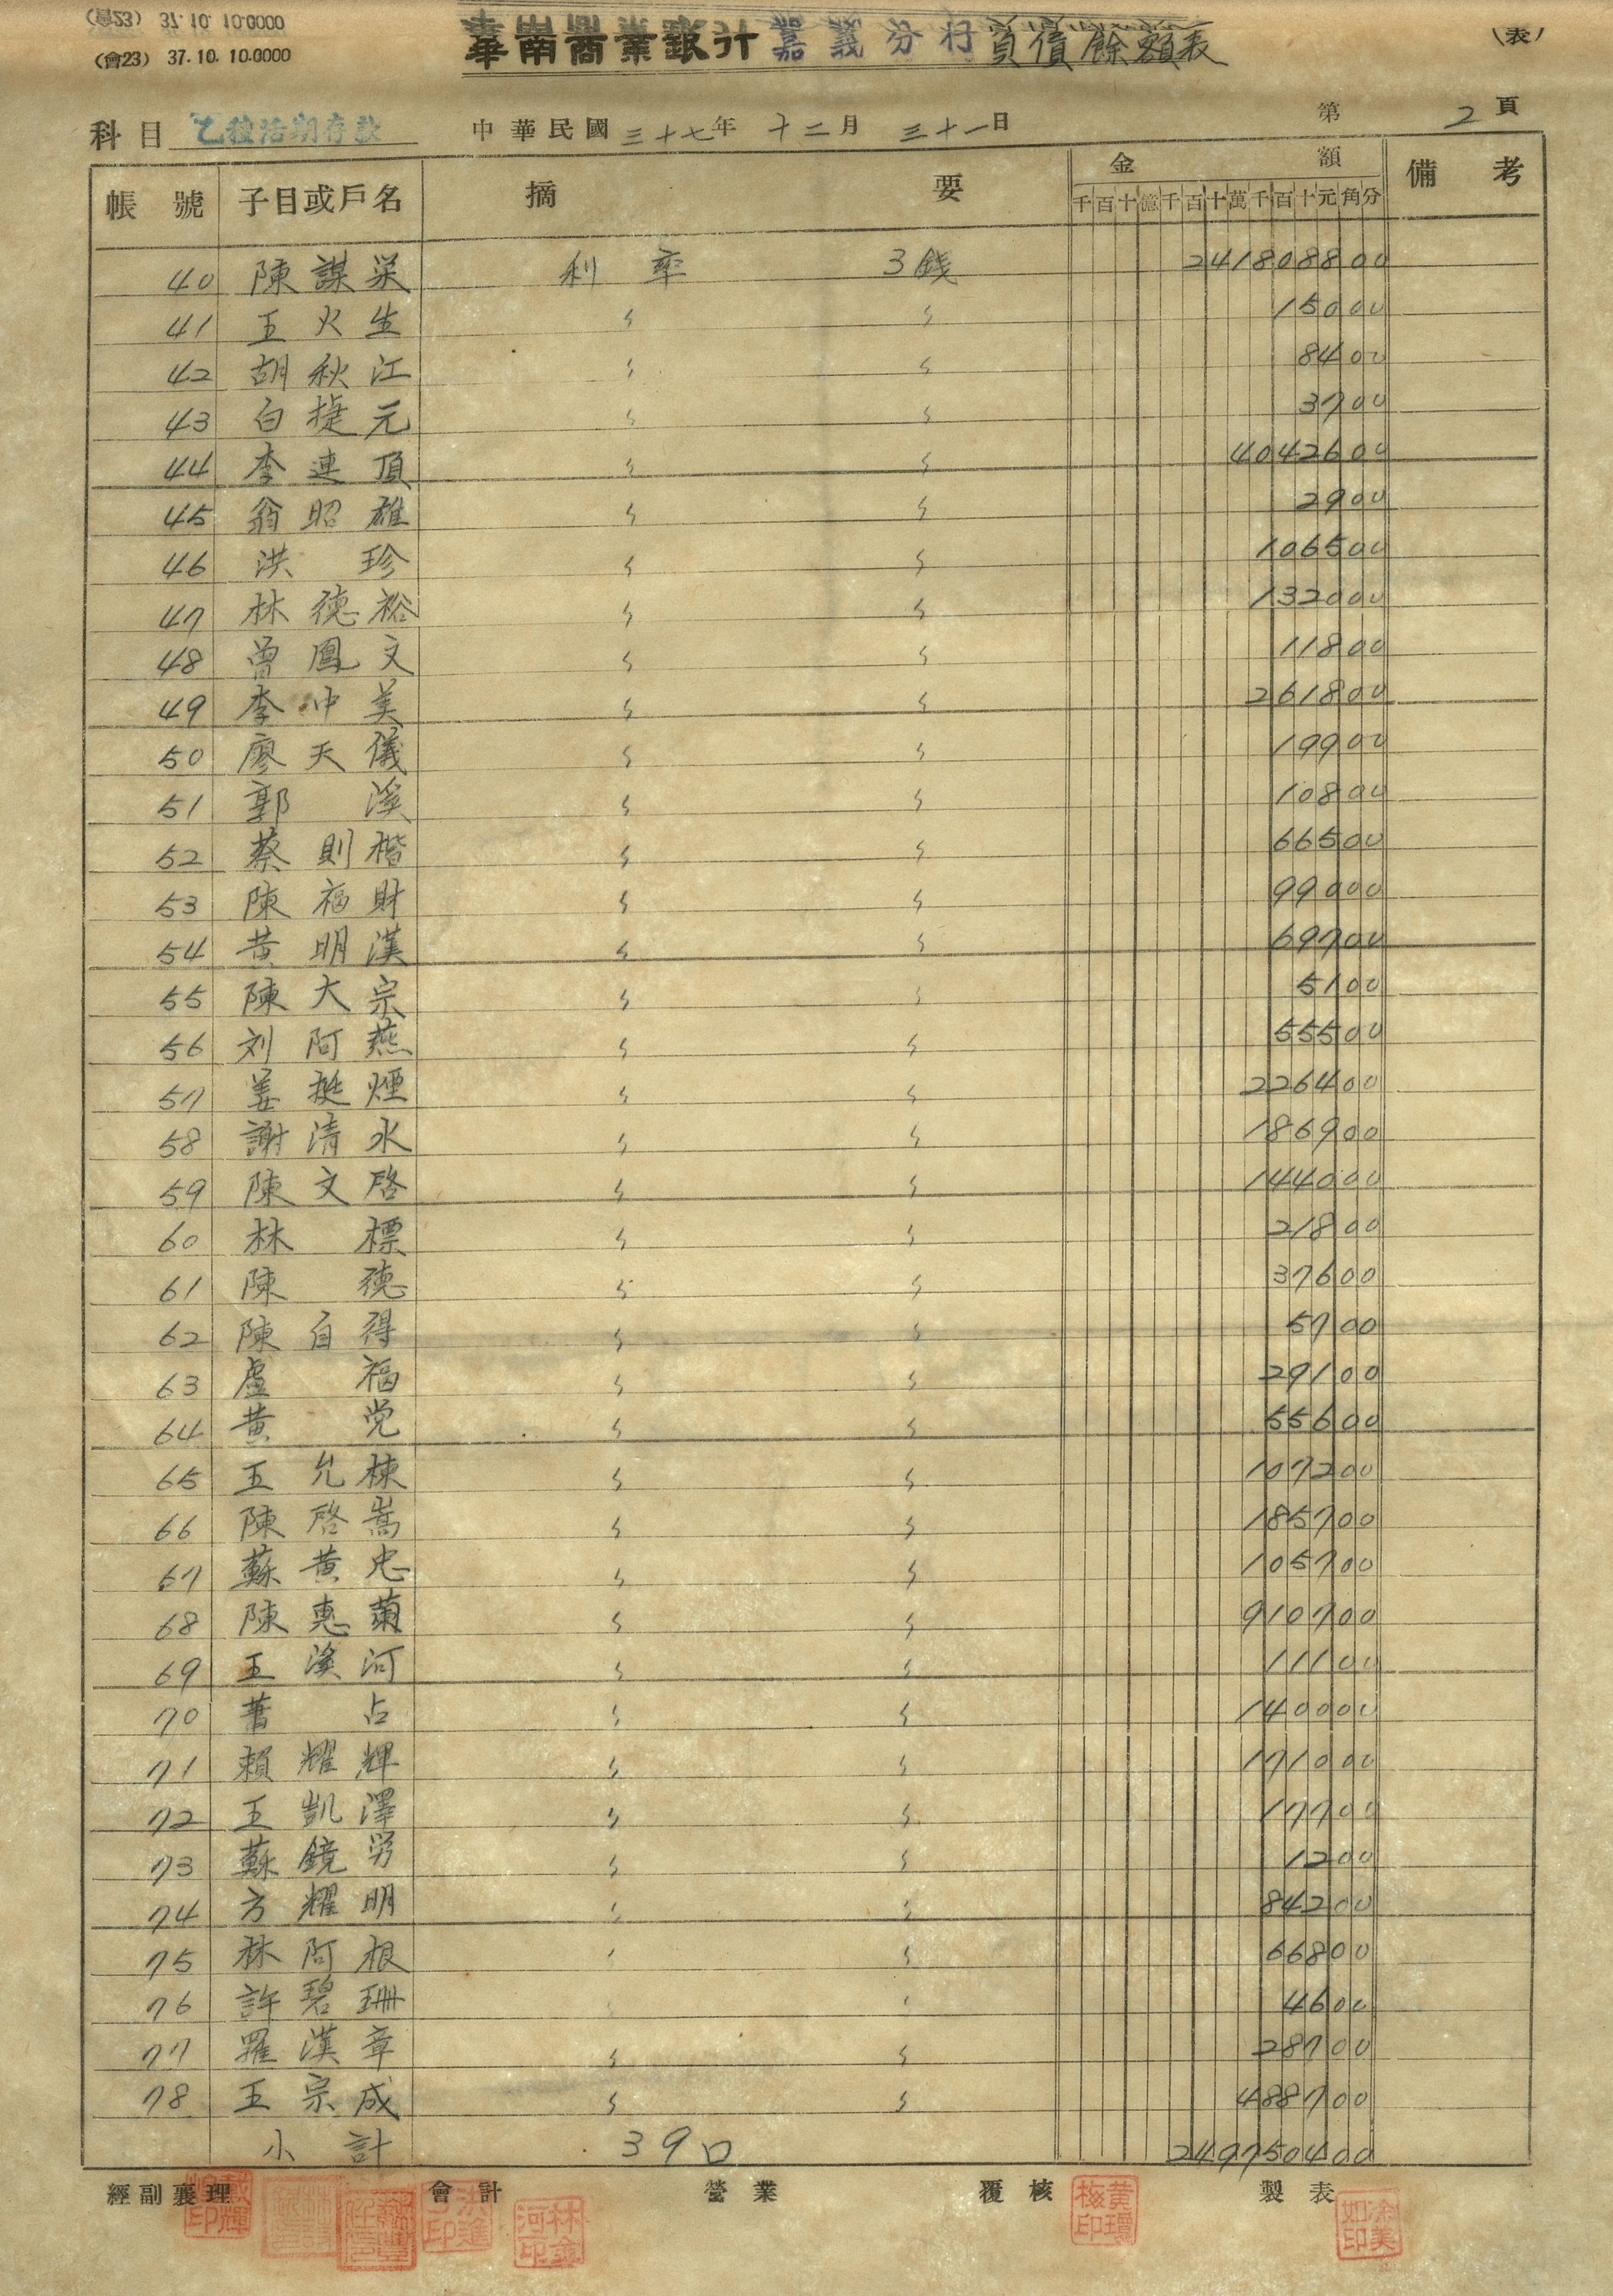 (會23) 37.10.10.0000
(會23) 37.10.10.0000
華南商業銀行嘉義分行負債餘額表
(表)
科目 乙種活期存款 中華民國三十七年十二月三十一日 第2頁
帳號 子目或戶名 摘要 金額 備考
千百十億千百十萬千百十元角分
40 陳謀栄 利率 3錢 2418088 00
41 王火生 〃 〃 150 00
42 胡秋江 〃 〃 84 00
43 白捷元 〃 〃 37 00
44 李連頂 〃 〃 40426 00
45 翁昭雄 〃 〃 29 00
46 洪珍 〃 〃 1065 00
47 林德裕 〃 〃 1320 00
48 曾鳳文 〃 〃 118 00
49 李冲美 〃 〃 2618 00
50 廖天儀 〃 〃 199 00
51 郭溪 〃 〃 108 00
52 蔡則楷 〃 〃 665 00
53 陳福財 〃 〃 990 00
54 黃明漢 〃 〃 697 00
55 陳大宗 〃 〃 51 00
56 刘阿燕 〃 〃 555 00
57 姜挺煙 〃 〃 2264 00
58 謝清水 〃 〃 1869 00
59 陳文啓 〃 〃 1440 00
60 林標 〃 〃 218 00
61 陳德 〃 〃 376 00
62 陳自得 〃 〃 57 00
63 盧福 〃 〃 291 00
64 黃党 〃 〃 556 00
65 王允棟 〃 〃 1072 00
66 陳啓嵩 〃 〃 1857 00
67 蘇黃忠 〃 〃 1057 00
68 陳惠蘭 〃 〃 9107 00
69 王溪河 〃 〃 111 00
70 蕭占 〃 〃 1400 00
71 賴耀輝 〃 〃 1710 00
72 王凱澤 〃 〃 177 00
73 蘇鏡労 〃 〃 12 00
74 方耀明 〃 〃 842 00
75 林阿根 〃 〃 668 00
76 許碧珊 〃 〃 46 00
77 羅漢章 〃 〃 287 00
78 王宗成 〃 〃 4887 00
小計 39口 2497504 00
經副襄理 會計 營業 覆核 製表
林金河印
黃瓊梅印
涂美如印